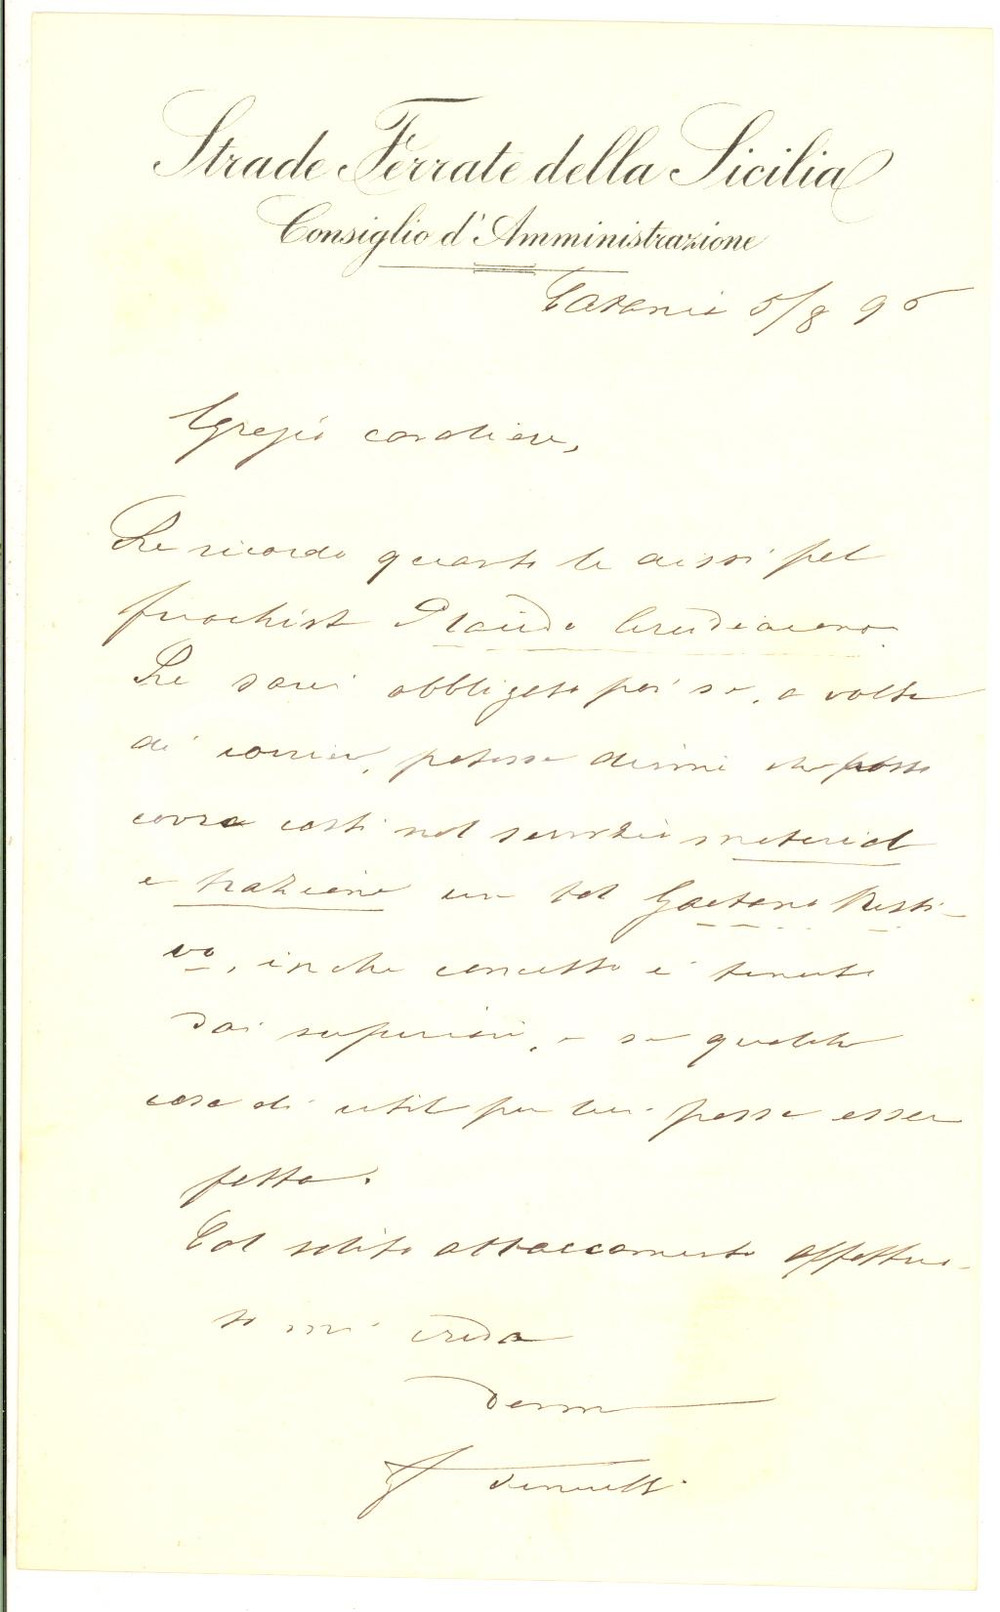 Strade Ferrate della Sicilia
Consiglio d'Amministrazione
Catania 5/8 96
Egregio cavaliere,
Le ricordo quanto le dissi pel
fuochista Placido
Le sarei obbligato poi se, a volta
di corriere, potesse dirmi che posto
covra costì nel servizio material
e trazione un tal Gaetano Resti-
vo, in che concetto è tenuto
dai superiori, e se qualche
cosa di util per lui possa esser
fatta.
Col solito attaccamento affettuo-
so mi creda